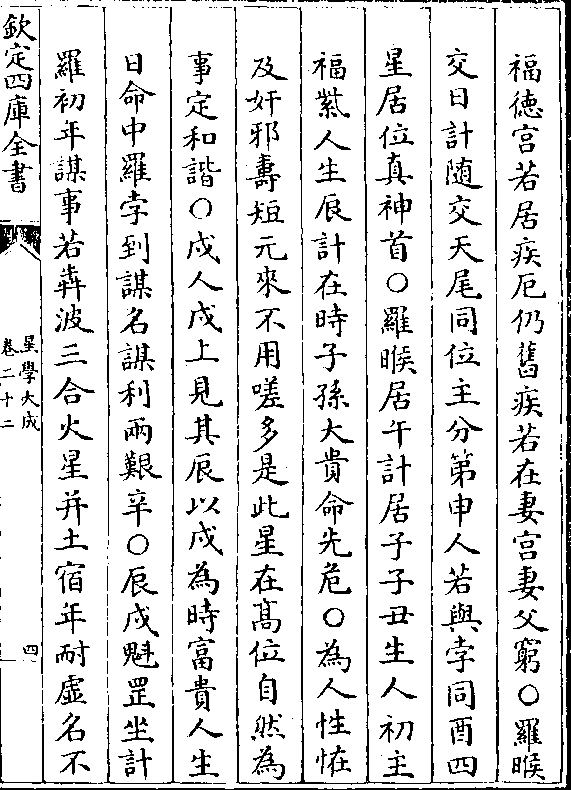 福德宫若居疾厄仍舊疾若在妻宫妻父窮○羅㬋
交日計随交天尾同位主分第申人若與孛同酉四
星居位真神首○羅㬋居午計居子子丑生人初主
福紫人生辰計在時子孫大貴命先危○為人性恠
及奸邪壽短元來不用嗟多是此星在髙位自然為
事定和諧○戌人戌上見其辰以戌為時富貴人生
日命中羅孛到謀名謀利兩艱辛○辰戌魁罡坐計
羅初年謀事若奔波三合火星并土宿年耐虚名不
欽定四庫全書
星學大成
卷二十二
四